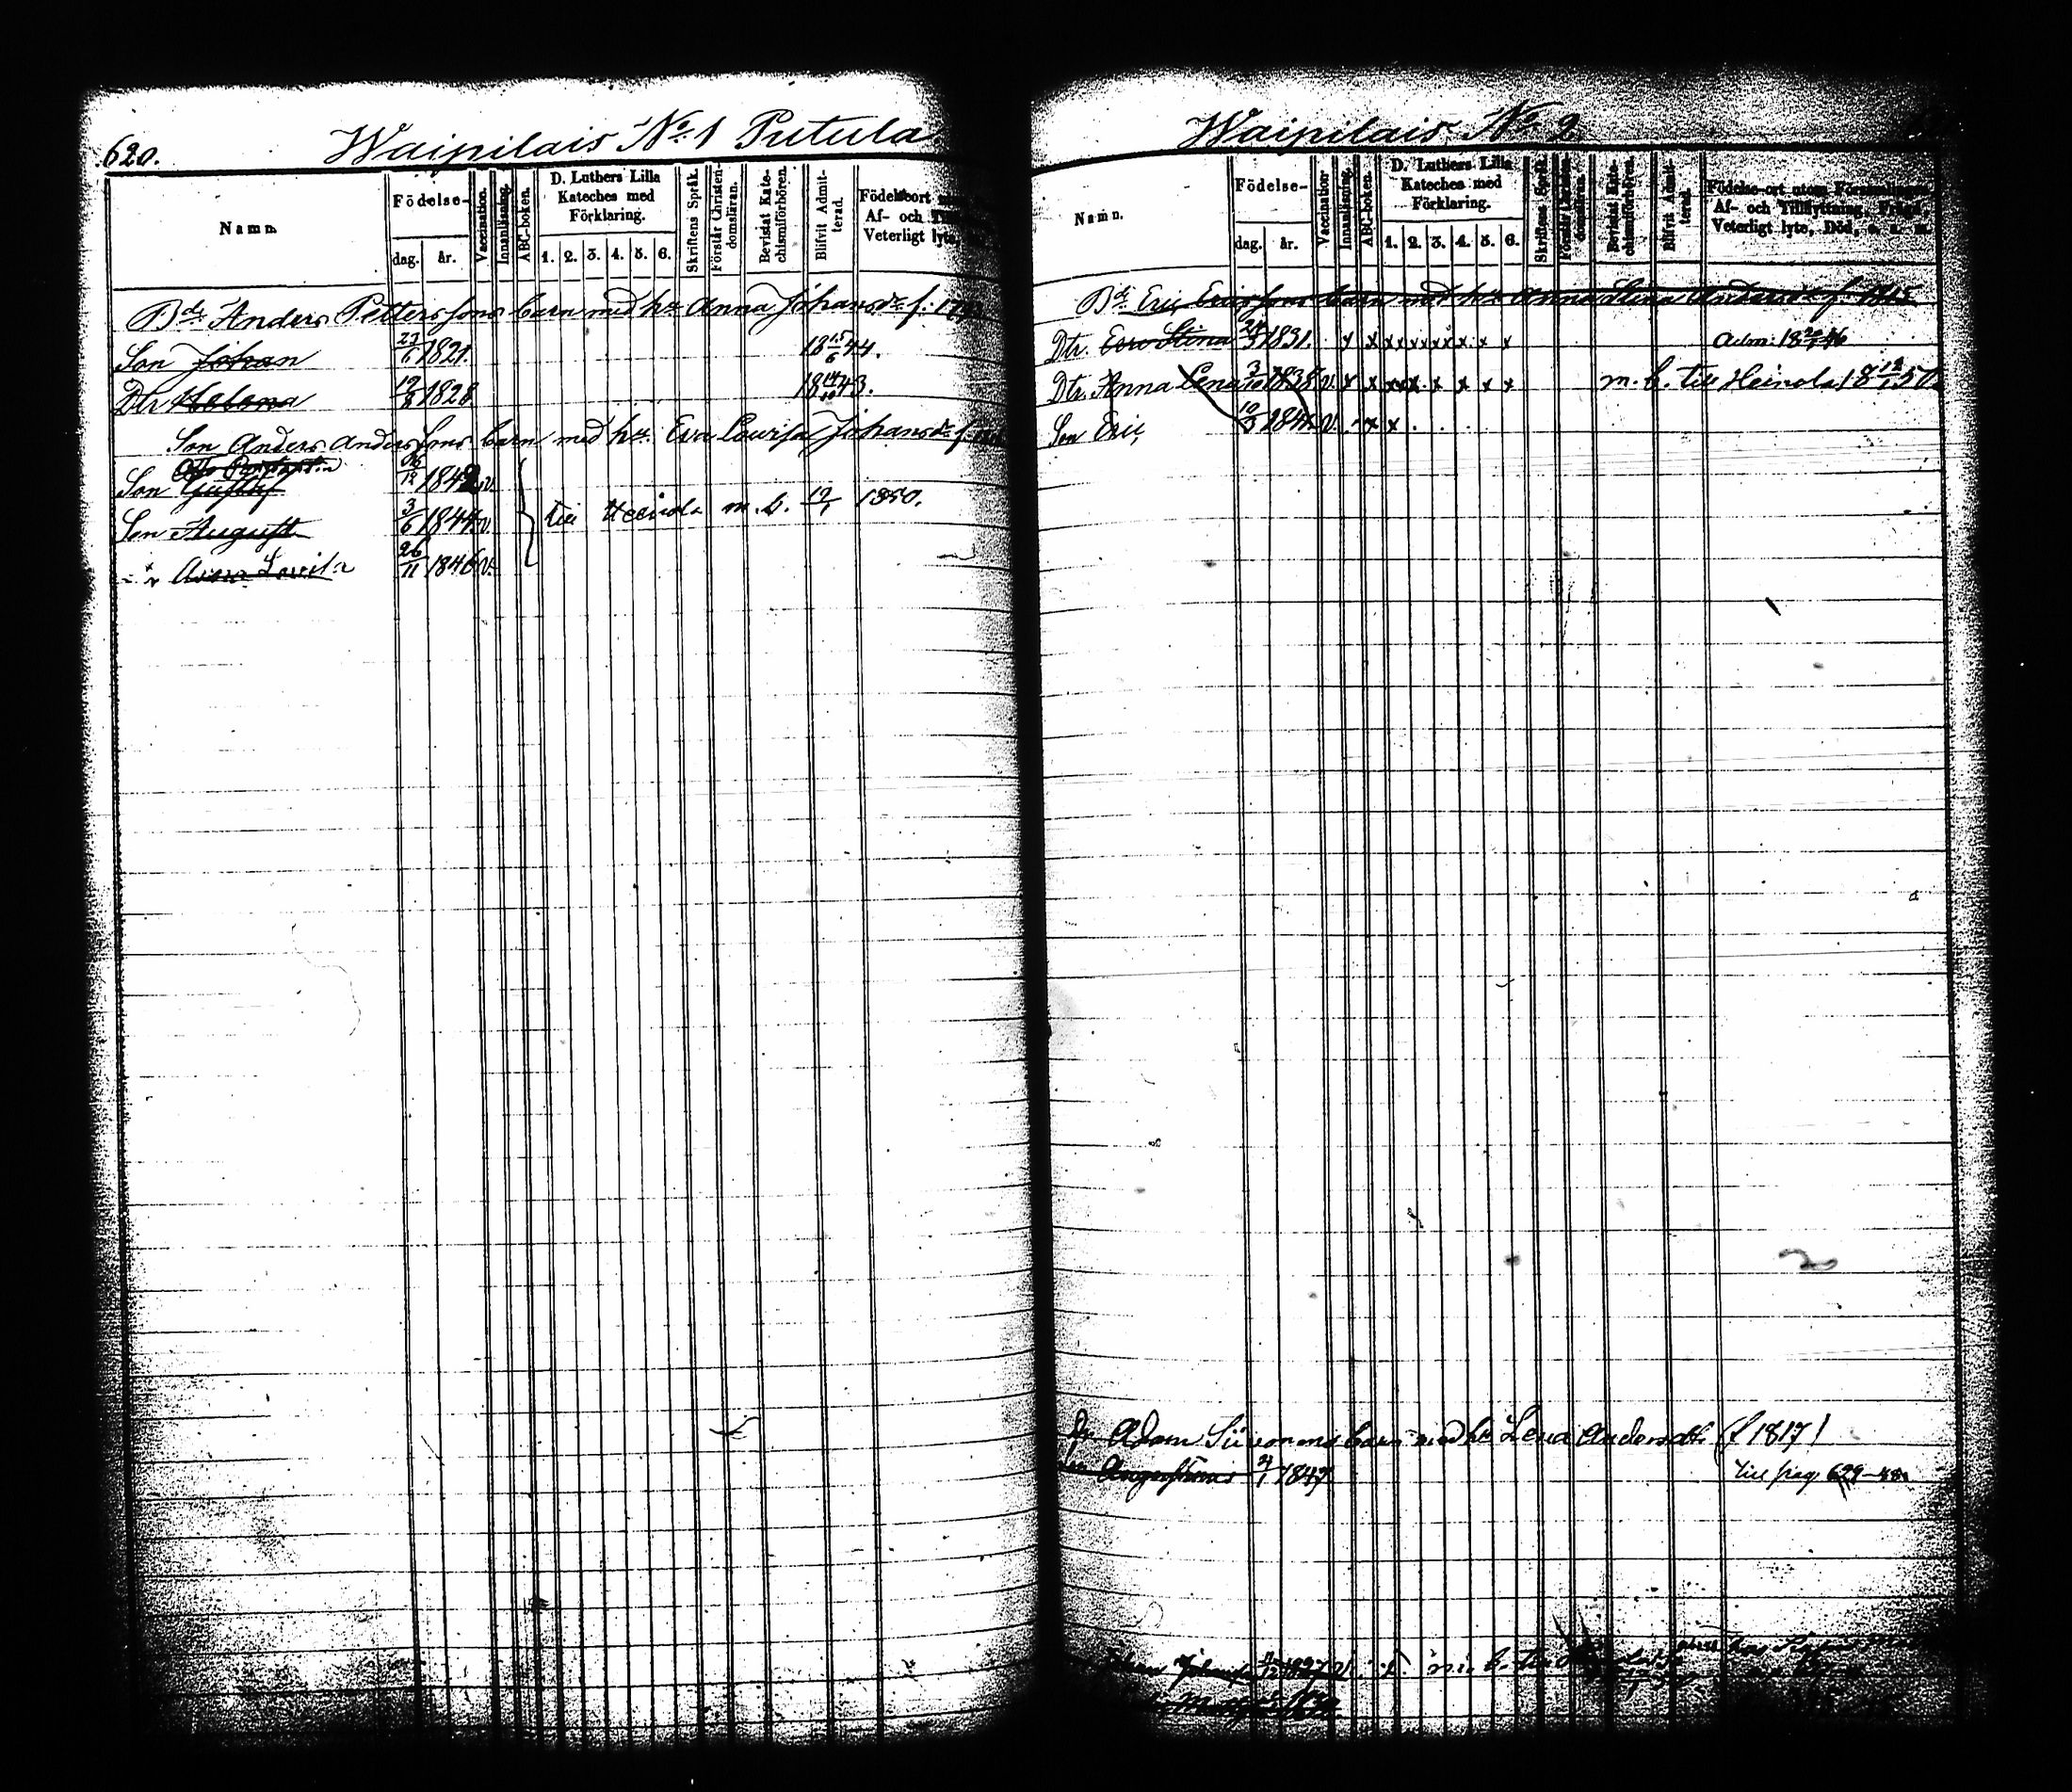 620.
Waipilais No. 1 Putula
Namn.
Födelse-
dag.
år.
Vaccination.
Innanläsning.
ABC-boken.
D. Luthers Lilla
Kateches med
Förklaring.
1. 2. 3. 4. 5. 6.
Skriftens Språk.
Förstår Christen-
domsläran.
Bevistat Kate-
chismiförhören.
Blifvit Admit-
terad.
Födelseort
Af- och
Veterligt lyte,
Bd. Anders Petterssons barn med hu Anna Johansdr f:
Son Johan 23/6 1821. 18 15/6 44.
Dtr Helena 12/8 1828 18 43.
Son Anders Anderssons barn med hu. Eva Lovisa Johansdr f.
Son Gustaf 12 1842 v.
Son August 3/6 1844 v. till Heinola m. b. 12/1 1850.
Anna Lovisa 26/11 1846 v.
Waipilais No. 2
Namn.
Födelse-
dag. år.
Vaccination.
Innanläsning.
ABC-boken.
D. Luthers Lilla
Kateches med
Förklaring.
1. 2. 3. 4. 5. 6.
Skriftens Språk.
Förstår Christen-
domsläran.
Bevistat Kate-
chismiförhören.
Blifvit Admit-
terad.
Födelse-ort utom Församlingen,
Af- och Tillflyttning, Frägd,
Veterligt lyte, Död, o. s. m.
Bd. Eric Ericssons barn med hu Anna Stina Andersdr f. 1815
Dtr. Eva Stina 24 1831. x x x x x x x x x x x Adm: 18 46
Dtr. Anna Lena 3/10 1838 v. x x x x x x x x x m. b. till Heinola 18 12/1 50.
Son Eric, 10/3 184 v. x x
Adam Siivonens barn med hu Lena Andersdtr (f 1817)
Augustinus 1847 till pag 629
Johan 1827 v. m. b.